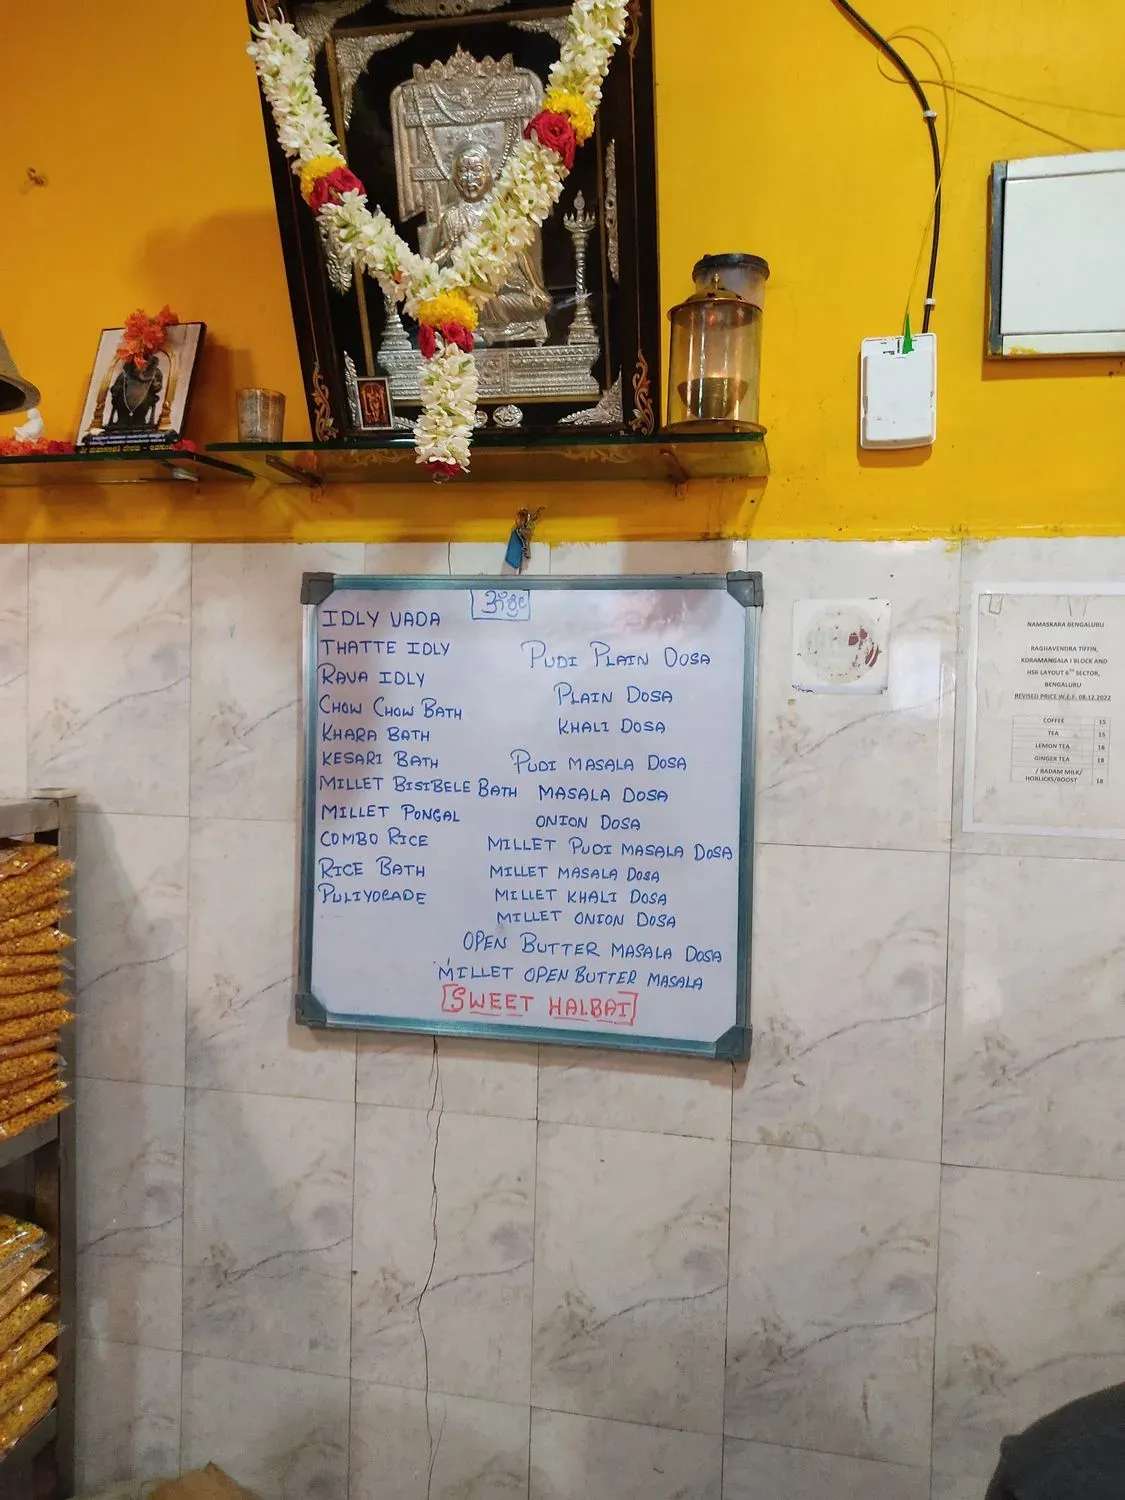 IDLY VADA
THATTE IDLY
RAVA IDLY
CHOW CHOW BATH
KHARA BATH
KESARI BATH
MILLET BISIBELE BATH
MILLET PONGAL
COMBO RICE
RICE BATH
PULIYOGADE
PUDI PLAIN DOSA
PLAIN DOSA
KHALI DOSA
PUDI MASALA DOSA
MASALA DOSA
ONION DOSA
MILLET PUDI MASALA DOSA
MILLET MASALA DOSA
MILLET KHALI DOSA
MILLET ONION DOSA
OPEN BUTTER MASALA DOSA
MILLET OPEN BUTTER MASALA
SWEET HALBAI
NAMASKARA BENGALURU
RAGHAVENDRA TIFFIN,
KORAMANGALA I BLOCK AND
HSR LAYOUT 6TH SECTOR,
BENGALURU
REVISED PRICE W.E.F. 08.12.2022
COFFEE 15
TEA 15
LEMON TEA 18
GINGER TEA 18
/ BADAM MILK/
HORLICKS/BOOST 18